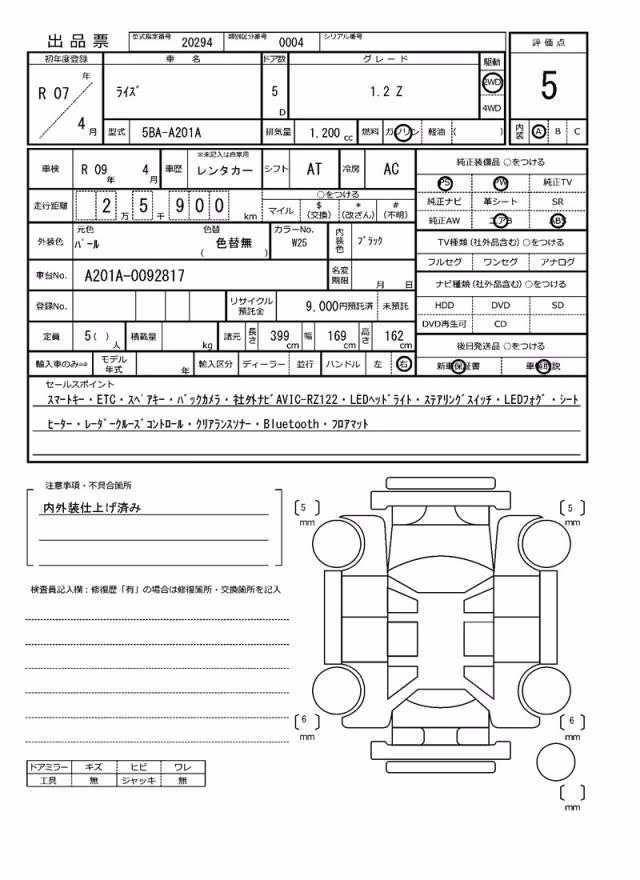 出品票 型式指定番号 20294 類別区分番号 0004 シリアル番号
評価点
5
内装 A B C
初年度登録 車名 ドア数 グレード 駆動
R 07 年 4 月 ﾗｲｽﾞ 5 D 1.2 Z 2WD 4WD
型式 5BA-A201A 排気量 1.200 cc 燃料 ガソリン 軽油 ( )
車検 R 09 年 4 月 車歴 ※未記入は自家用 レンタカー シフト AT 冷房 AC
純正装備品 ○をつける
PS PW 純正TV
純正ナビ 革シート SR
純正AW エアB ABS
走行距離 2 万 5 千 9 0 0 km
○をつける
マイル $ (交換) * (改ざん) # (不明)
外装色 元色 ﾊﾟｰﾙ 色替 色替無 ( ) カラーNo. W25 内装色 ﾌﾞﾗｯｸ
TV種類 (社外品含む) ○をつける
フルセグ ワンセグ アナログ
車台No. A201A-0092817 名変期限 月 日
ナビ種類 (社外品含む) ○をつける
HDD DVD SD
DVD再生可 CD
登録No. リサイクル預託金 9,000円預託済 未預託
定員 5 ( ) 人 積載量 kg 諸元 長さ 399 cm 幅 169 cm 高さ 162 cm
後日発送品 ○をつける
新車保証書 車輌取説
輸入車のみ⇒ モデル年式 年 輸入区分 ディーラー 並行 ハンドル 左 右
セールスポイント
ｽﾏｰﾄｷｰ・ETC・ｽﾍﾟｱｷｰ・ﾊﾞｯｸｶﾒﾗ・社外ﾅﾋﾞAVIC-RZ122・LEDﾍｯﾄﾞﾗｲﾄ・ｽﾃｱﾘﾝｸﾞｽｲｯﾁ・LEDﾌｫｸﾞ・ｼｰﾄ
ﾋｰﾀｰ・ﾚｰﾀﾞｰｸﾙｰｽﾞｺﾝﾄﾛｰﾙ・ｸﾘｱﾗﾝｽｿﾅｰ・Bluetooth・ﾌﾛｱﾏｯﾄ
注意事項・不具合箇所
内外装仕上げ済み
検査員記入欄：修復歴「有」の場合は修復箇所・交換箇所を記入
5 mm
5 mm
6 mm
6 mm
mm
ドアミラー キズ ヒビ ワレ
工具 無 ジャッキ 無